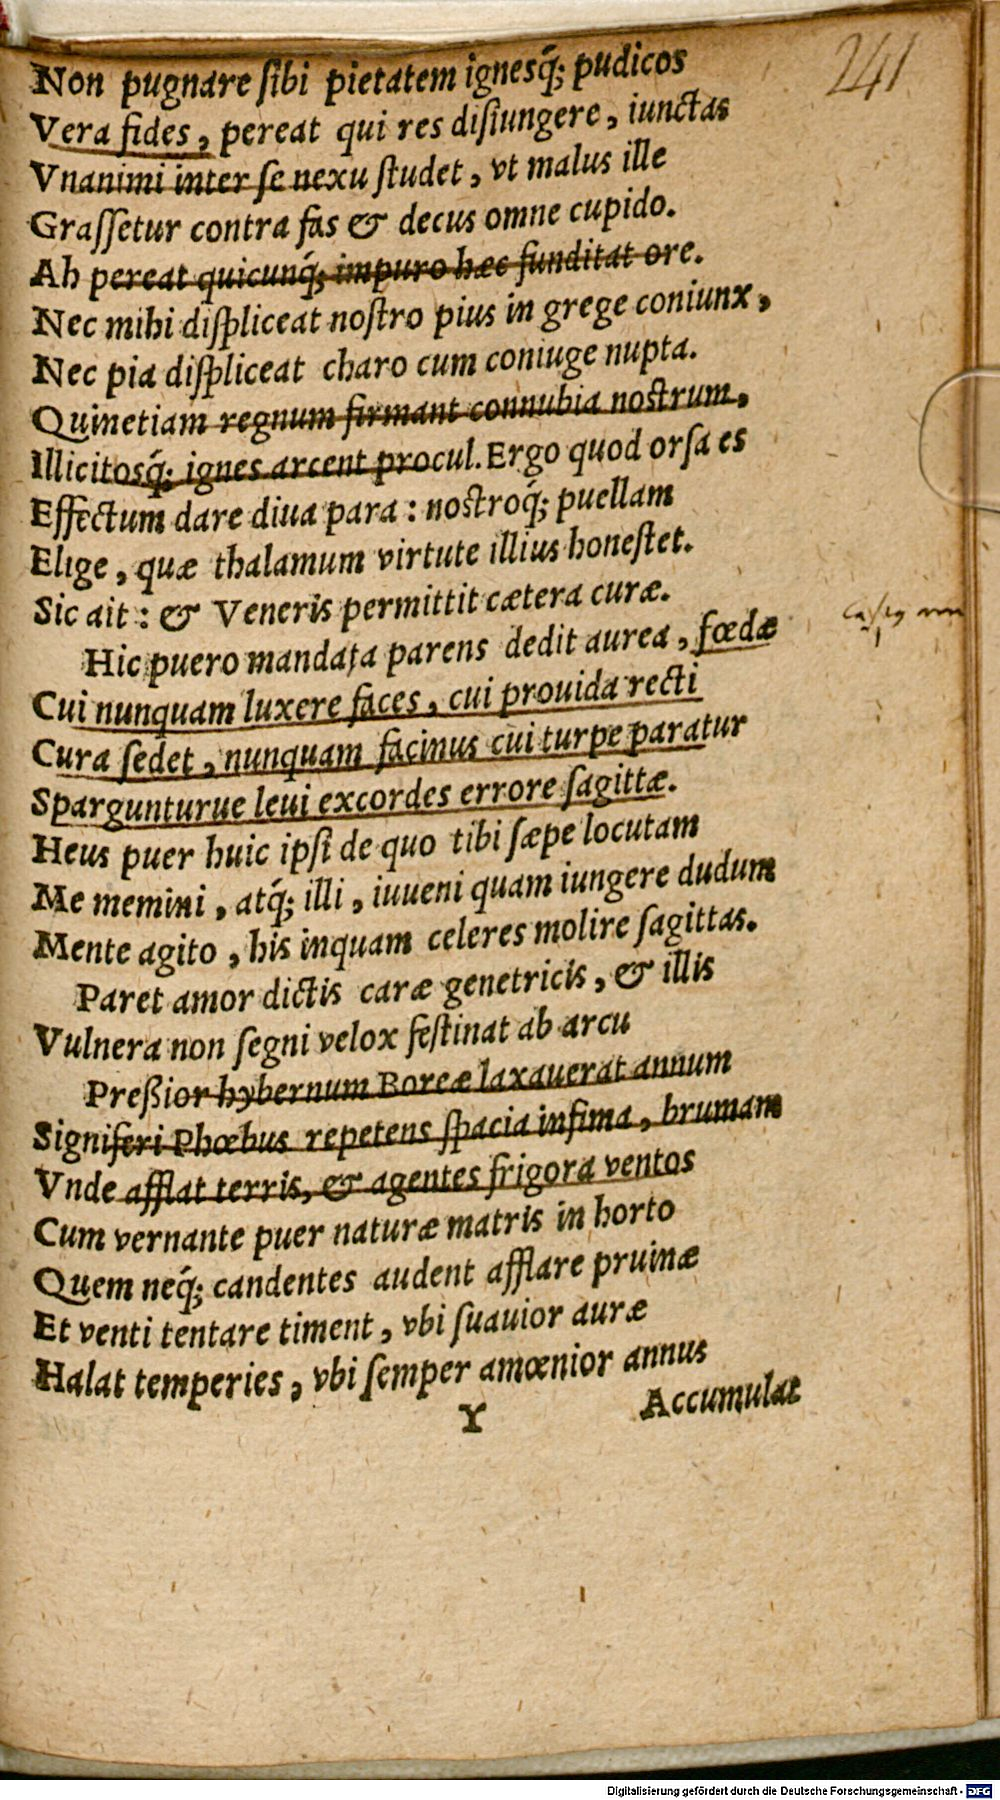 241
Non pugnare ſibi pietatem ignesq́; pudicos
Vera fides, pereat qui res diſiungere, iunctas
Vnanimi inter ſe nexu ſtudet, vt malus ille
Graſſetur contra fas & decus omne cupido.
Ah pereat quicunq́; impuro hæc funditat ore.
Nec mihi diſpliceat noſtro pius in grege coniunx,
Nec pia diſpliceat charo cum coniuge nupta.
Quinetiam regnum firmant connubia noſtrum,
Illicitosq́; ignes arcent procul. Ergo quod orſa es
Effectum dare diua para : noſtroq́; puellam
Elige, quæ thalamum virtute illius honeſtet.
Sic ait : & Veneris permittit cætera curæ.
Hic puero mandata parens dedit aurea, fœdæ
Cui nunquam luxere faces, cui prouida recti
Cura ſedet, nunquam facinus cui turpe paratur
Spargunturue leui excordes errore ſagittæ.
Heus puer huic ipſi de quo tibi ſæpe locutam
Me memini, atq́; illi, iuueni quam iungere dudum
Mente agito, his inquam celeres molire ſagittas.
Paret amor dictis caræ genetricis, & illis
Vulnera non ſegni velox feſtinat ab arcu
Preßior hybernum Boreæ laxauerat annum
Signiferi Phœbus repetens ſpacia infima, brumam
Vnde afflat terris, & agentes frigora ventos
Cum vernante puer naturæ matris in horto
Quem neq́; candentes audent afflare pruinæ
Et venti tentare timent, vbi ſuauior auræ
Halat temperies, vbi ſemper amœnior annus
Y Accumulat
Digitalisierung gefördert durch die Deutsche Forschungsgemeinschaft - DFG